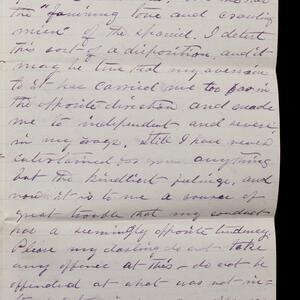 the "fawning tone and crawling
mien" of the spaniel. I detest
this sort of a disposition, and it
may be true that my aversion
to it has carried me too far in
the opposite direction and made
me to independent and severe
in my ways. Still I have never
entertained for you anything
but the kindliest feelings, and
now it is to me a source of
great trouble that my conduct
has a seemingly opposite tendency.
Please my darling do not take
any offence at this - do not be
offended at what was not in-